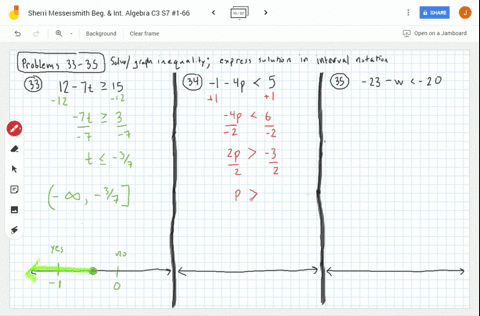 Sherri Messersmith Beg. & Int. Algebra C3 S7 #1-66
10/20
SHARE
J
Background
Clear frame
Open on a Jamboard
Problems 33-35 Solve/graph inequality; express solution in interval notation
33
12 - 7t ≥ 15
-12 -12
-7t ≥ 3
-7 -7
t ≤ -3/7
(-∞, -3/7]
yes no
-1 0
34
-1 - 4p < 5
+1 +1
-4p < 6
-2 -2
2p > -3
2 2
p >
35
-23 - w < -20